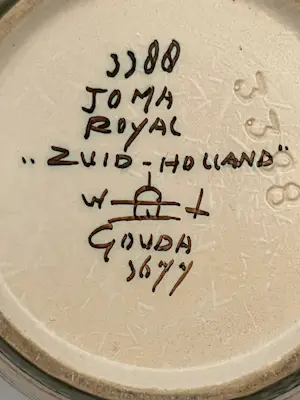 3388
JOMA
ROYAL
"ZUID-HOLLAND"
W
GOUDA
3677
3388